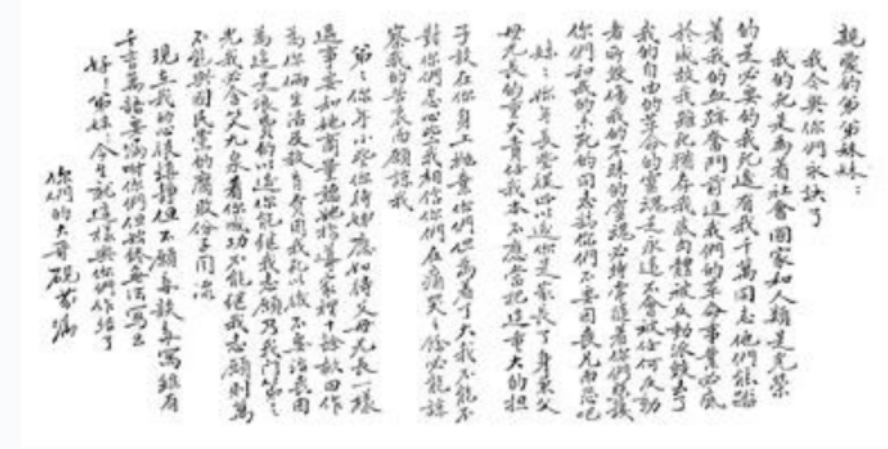 親愛的弟弟妹妹：
我今與你們永訣了
我的死是為着社會國家和人類是光榮
的是必要的我死還有我千萬同志他們能踏
着我的血跡奮鬥前進我們的革命事業必底
於成故我雖死猶存我底肉體被反動派毀去了
我的自由的革命的靈魂是永遠不會被任何反動
者所毀傷我的不昧的靈魂必時常隨着你們照護
你們和我的未死的同志請你們不要因喪兄而悲吧
妹：你年長些從此以後你是家長了身兼父
母兄長的重大責任我本不應當把這重大的担
子放在你身上拋棄你們但為着了大我不能不
對你們忍心些我相信你們在痛哭之餘必能諒
察我的苦衷而願諒我
弟：你年小些你待姊應如待父母兄長一樣
遇事要和她商量聽她指導家裡十餘畝田作
為你倆生活及教育費用我死以後不要治喪因
為這是浪費的以後你能繼我志願乃我門第之
光我必含笑九泉看你成功不能繼我志願則萬
不能與國民黨的腐敗份子同流
現在我的心很鎮靜但不願多談多寫雖有
千言萬語要囑咐你們但始終無法寫出
好！弟妹今生就這樣與你們作結了
你們的大哥硯農囑